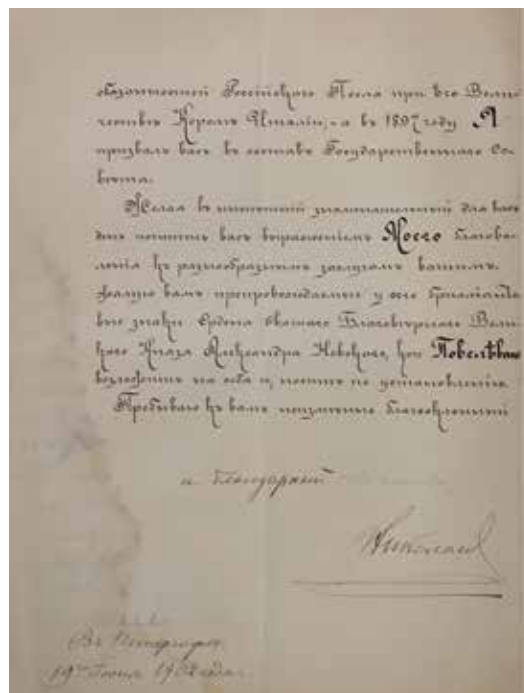 обязанностей Россійскаго Посла при Его Вели-
чествѣ Королѣ Италіи, а въ 1897 году Я
призвалъ васъ въ составъ Государственнаго Со-
вѣта.
Желая въ нынѣшній знаменательный для васъ
день почтить васъ выраженіемъ Моего благово-
ленія къ разнообразнымъ заслугамъ вашимъ,
жалую вамъ препровождаемые у сего брилліанто-
вые знаки Ордена Святаго Благовѣрнаго Вели-
каго Князя Александра Невскаго, кои Повелѣваю
возложить на себя и носить по установленію.
Пребываю къ вамъ неизмѣнно благосклонный
и благодарный
Николай
Въ Петергофѣ
19го года